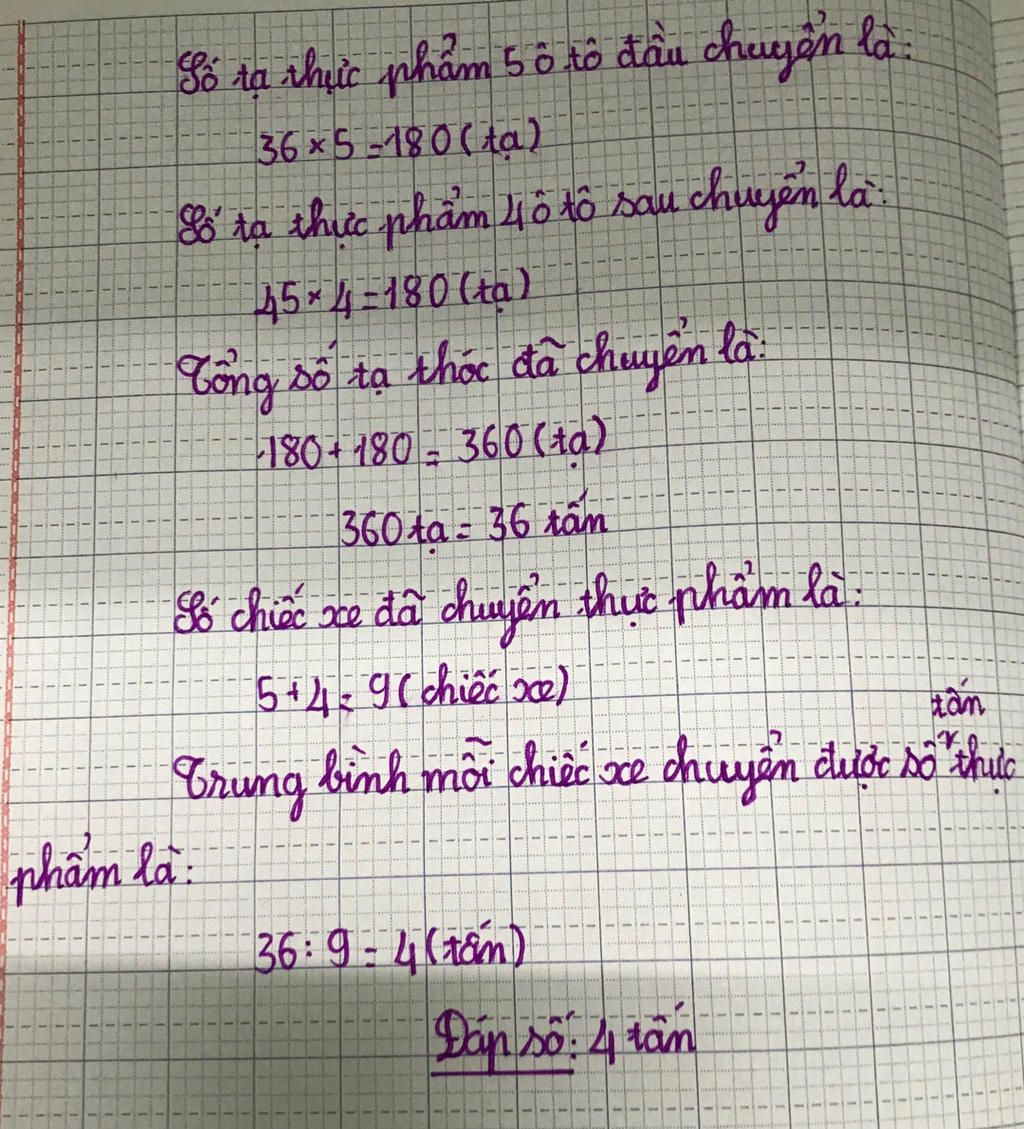 Số tạ thực phẩm 5 ô tô đầu chuyển là:
36 × 5 = 180 (tạ)
Số tạ thực phẩm 4 ô tô sau chuyển là:
45 × 4 = 180 (tạ)
Tổng số tạ thóc đã chuyển là:
180 + 180 = 360 (tạ)
360 tạ = 36 tấn
Số chiếc xe đã chuyển thực phẩm là:
5 + 4 = 9 (chiếc xe)
tấn
Trung bình mỗi chiếc xe chuyển được số thực
phẩm là:
36 : 9 = 4 (tấn)
Đáp số: 4 tấn